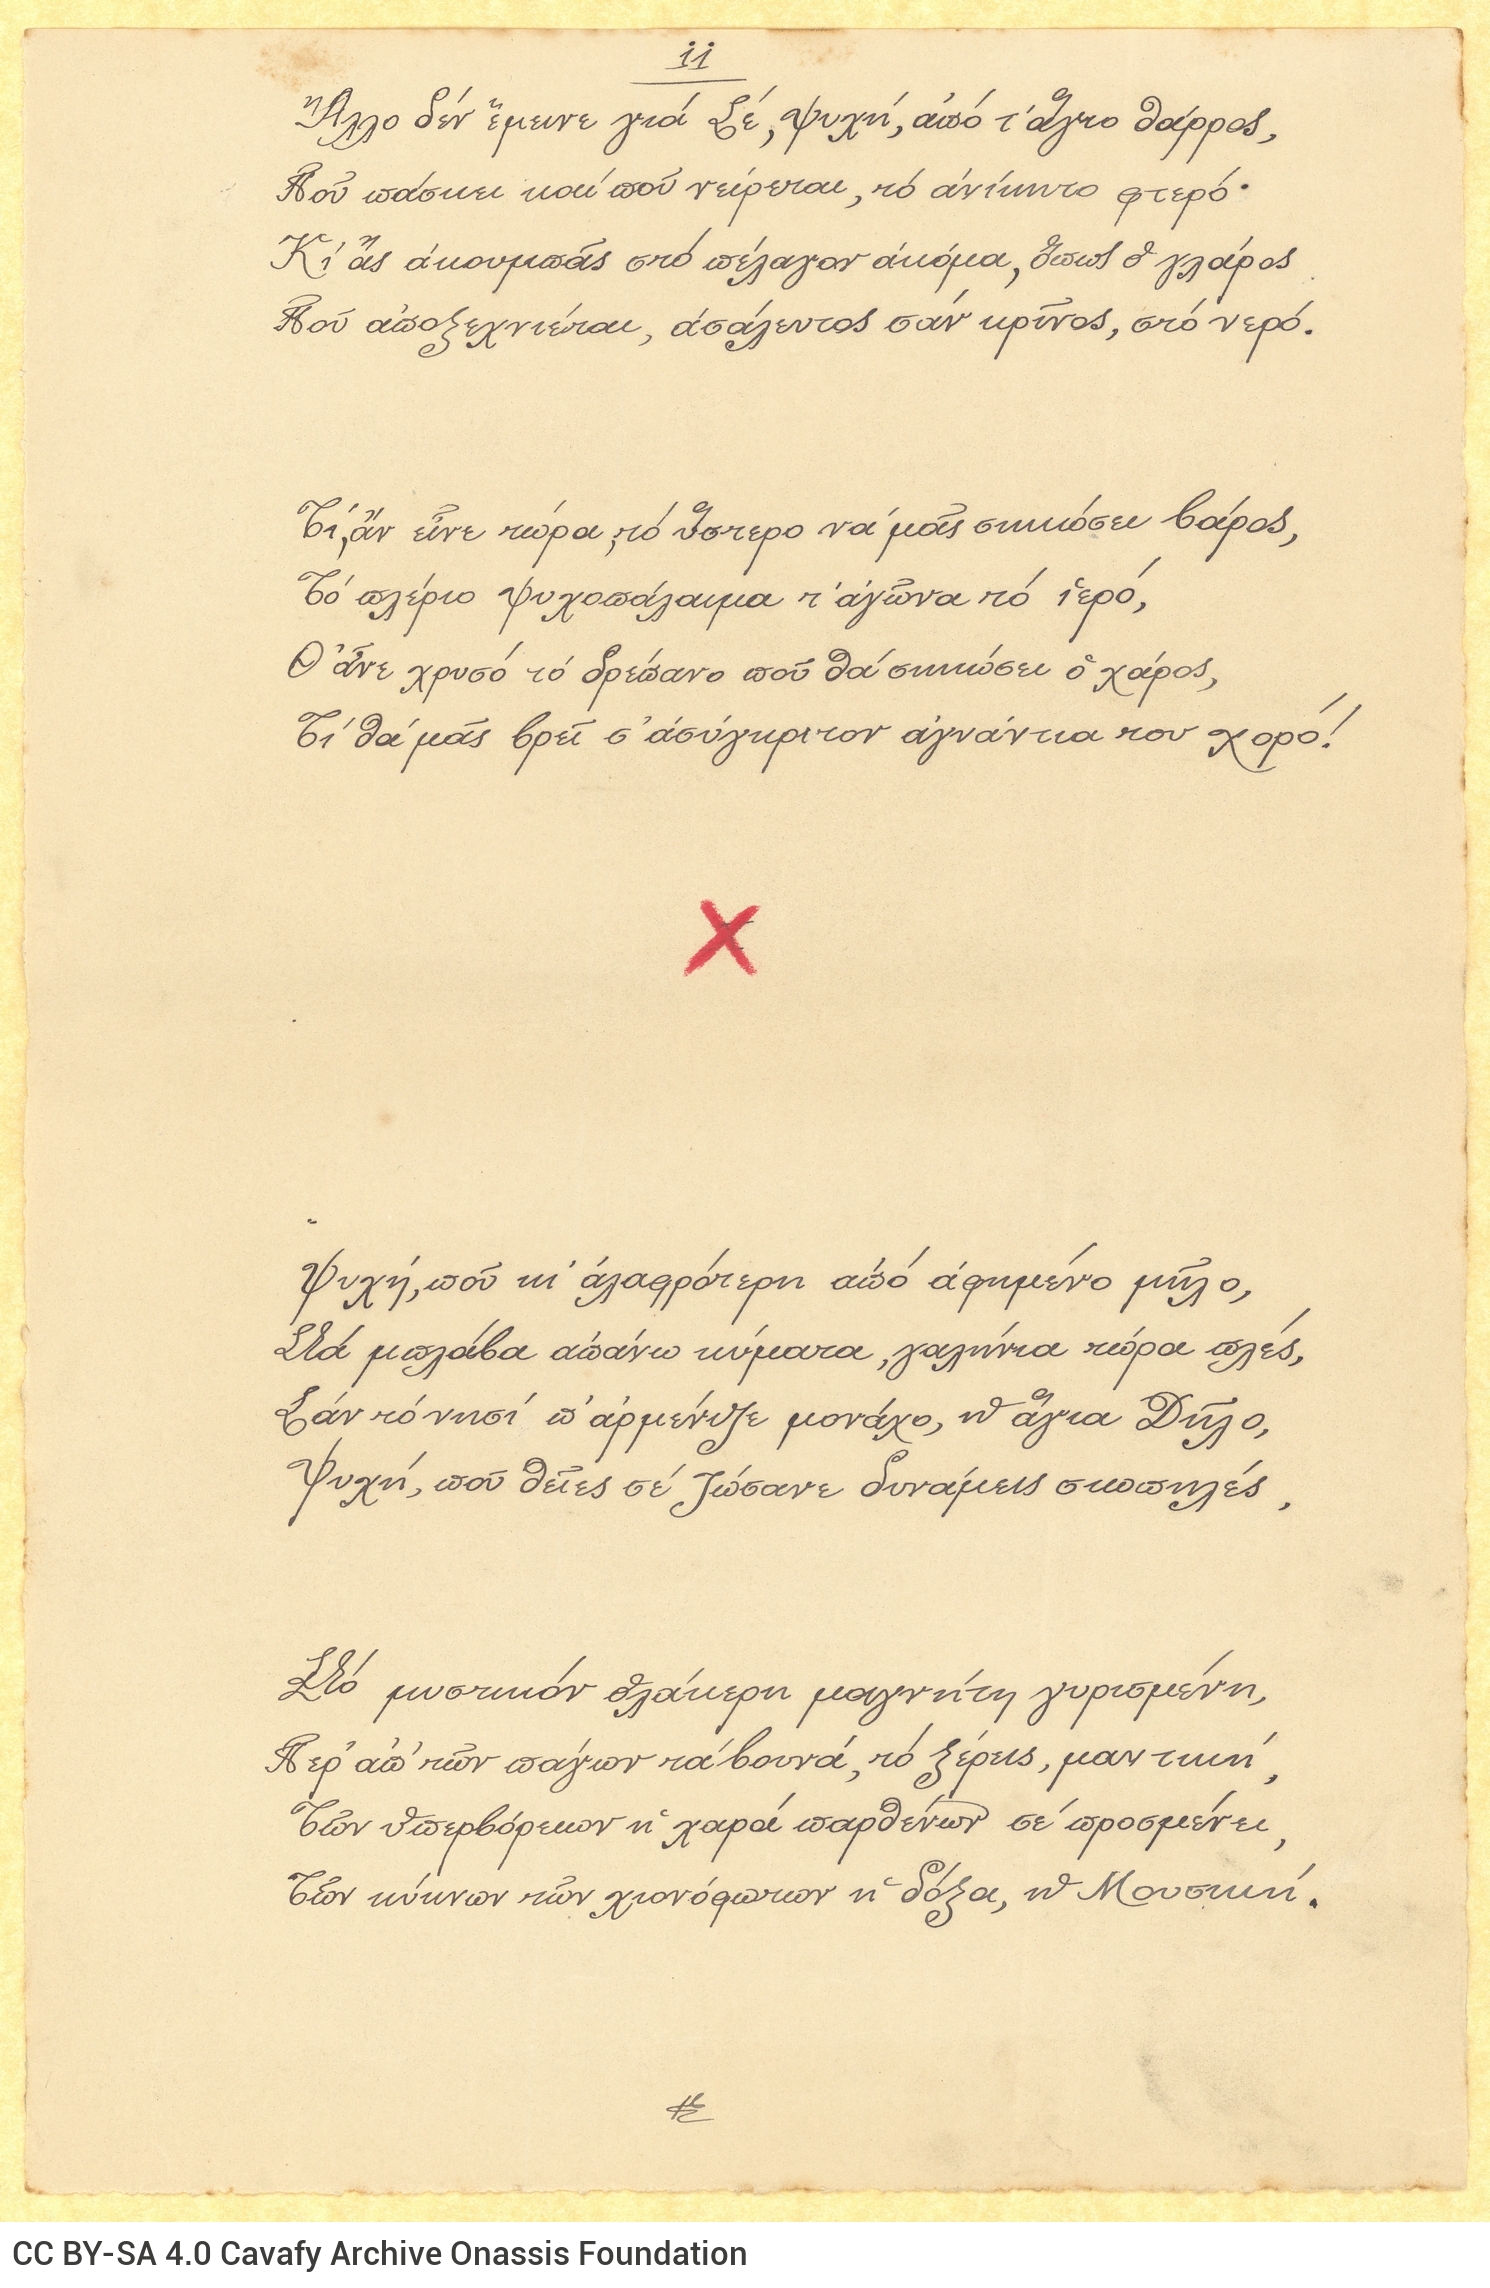 11
Ἄλλο δέν ἔμεινε γιά Σέ, ψυχή, ἀπό τ' ἅγιο θάρρος,
Ποῦ πάσκει καί ποῦ νείρεται, τό ἀνίκητο φτερό·
Κι' ἄς ἀκουμπᾶς στό πέλαγον ἀκόμα, ὅπως ὁ γλάρος
Ποῦ ἀποξεχνιέται, ἀσάλευτος σάν κρῖνος, στό νερό.
Τί, ἄν εἶνε τώρα, τό ὕστερο νά μᾶς σηκώσει βάρος,
Τό πλέριο ψυχοπάλαιμα τ' ἀγῶνα τό ἱερό,
Θ' ἆνε χρυσό τό δρεπάνο ποῦ θά σηκώσει ὁ χάρος,
Τί θά μᾶς βρεῖ σ' ἀσύγκριτον ἀγνάντια του χορό!
X
Ψυχή, ποῦ κι' ἀλαφρότερη ἀπό ἀφημένο μῆλο,
Στά μπλάβα ἀπάνω κύματα, γαλήνια τώρα πλές,
Σάν τό νησί π' ἀρμένιζε μονάχο, ἡ ἅγια Δῆλο,
Ψυχή, ποῦ θεῖες σέ ζώσανε δυνάμεις σιωπηλές,
Στό μυστικόν ὁλάκερη μαγνήτη γυρισμένη,
Περ' ἀπ' τῶν πάγων τά βουνά, τό ξέρεις, μαντική,
Τῶν ὑπερβόρειων ἡ χαρά παρθένων σέ προσμένει,
Τῶν κύκνων τῶν χιονόφωτων ἡ δόξα, ἡ Μουσική.
CC BY-SA 4.0 Cavafy Archive Onassis Foundation